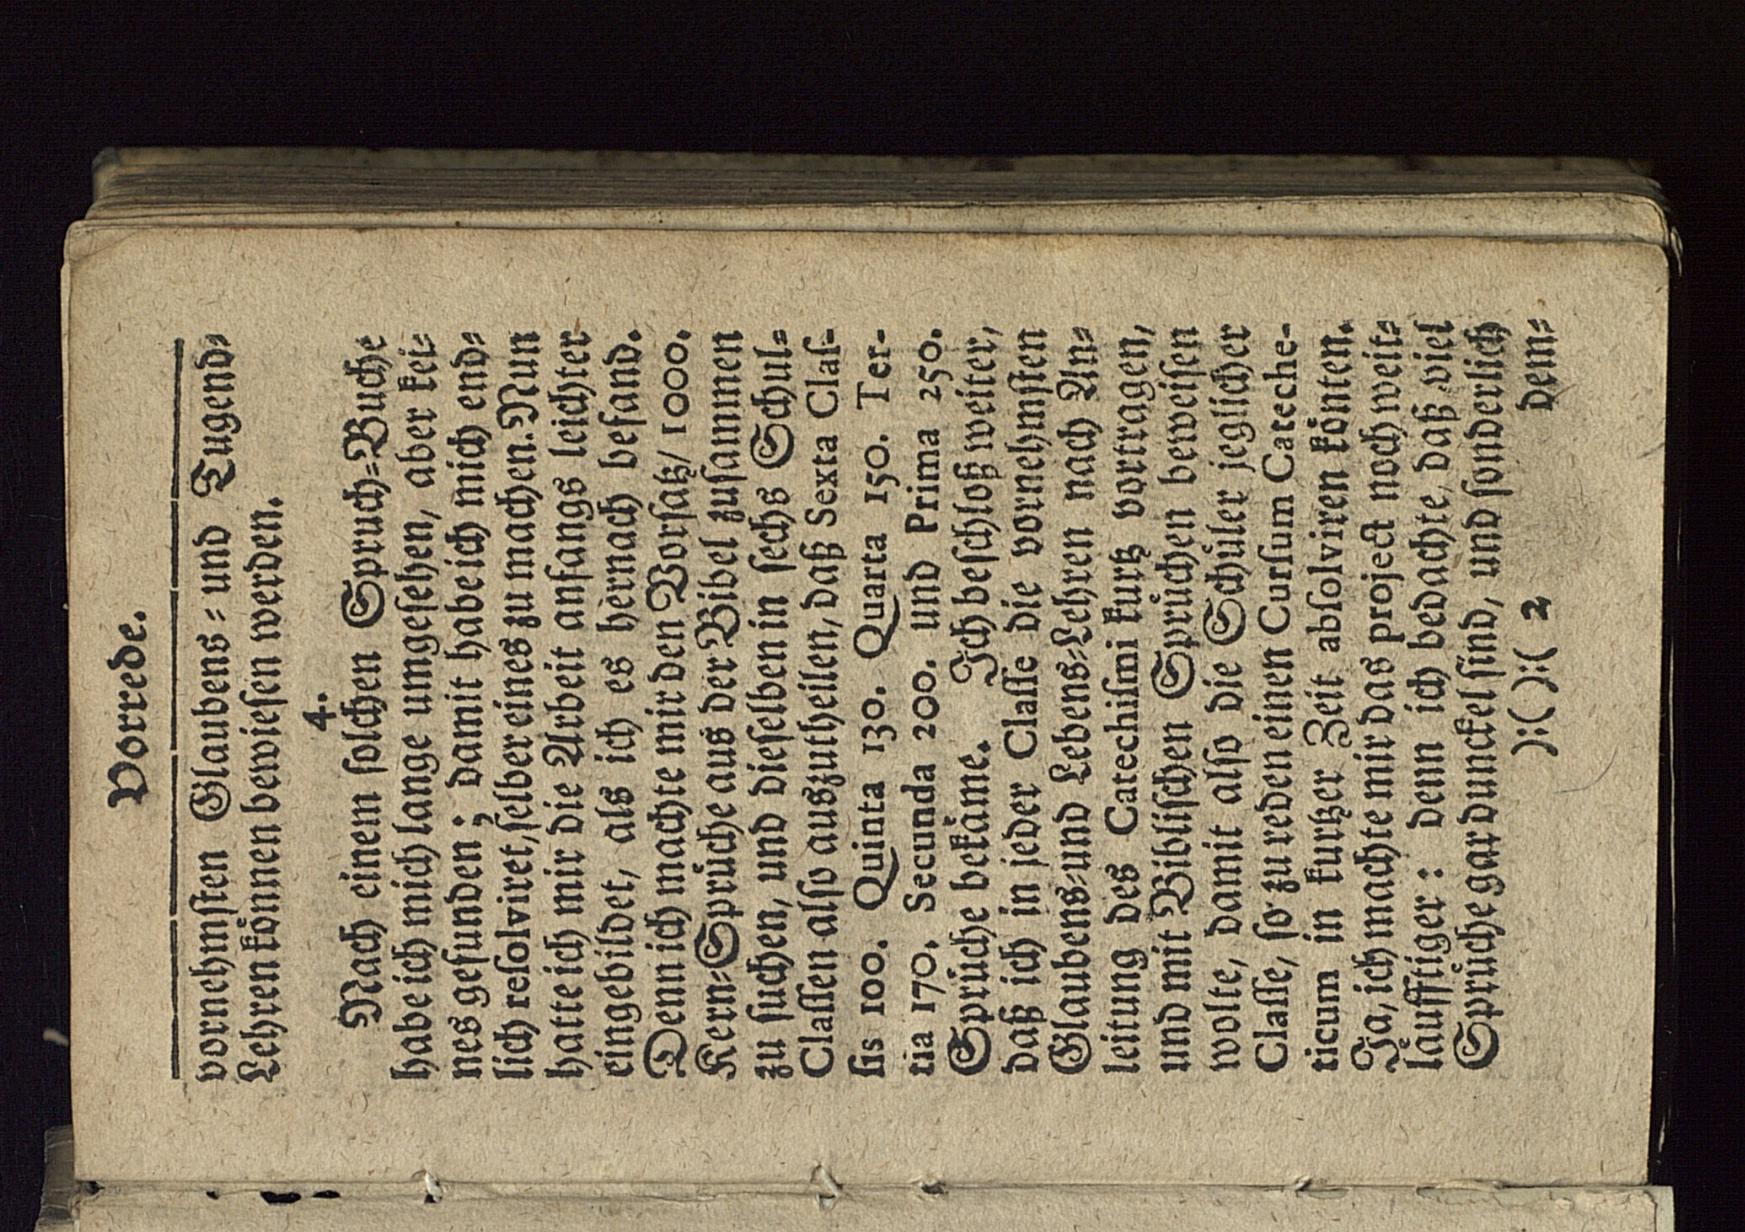 Vorrede.
vornehmsten Glaubens- und Tugend-
Lehren können bewiesen werden.
4.
Nach einem solchen Spruch-Buche
habe ich mich lange umgesehen, aber kei-
nes gefunden; damit habe ich mich end-
lich resolviret, selber eines zu machen. Nun
hatte ich mir die Arbeit anfangs leichter
eingebildet, als ich es hernach befand.
Denn ich machte mir den Vorsatz/ 1000.
Kern-Sprüche aus der Bibel zusammen
zu suchen, und dieselben in sechs Schul-
Classen also auszutheilen, daß Sexta Clas-
sis 100. Quinta 130. Quarta 150. Ter-
tia 170. Secunda 200. und Prima 250.
Sprüche bekäme. Ich beschloß weiter,
daß ich in jeder Classe die vornehmsten
Glaubens-und Lebens-Lehren nach An-
leitung des Catechismi kurtz vortragen,
und mit Biblischen Sprüchen beweisen
wolte, damit also die Schüler jeglicher
Classe, so zu reden einen Cursum Cateche-
ticum in kurtzer Zeit absolviren könten.
Ja, ich machte mir das project noch weit-
läufftiger: denn ich bedachte, daß viel
Sprüche gar dunckel sind, und sonderlich
):( ):( 2 dem-